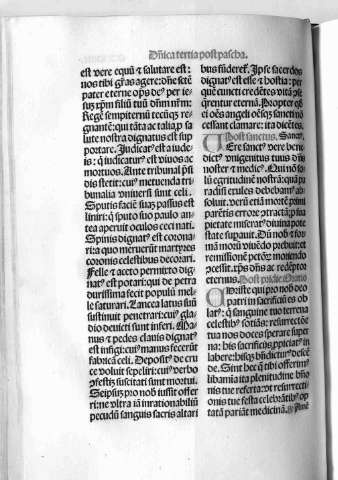 Dñica tertia post pascha.
est vere equũ & salutare est:
nos tibi gr̃as agere: dñe sctẽ
pater eterne op̃s de9 per ie-
sus xp̃m filiũ tuũ dñm nr̃m:
Regẽ sempiternũ tecũqz re-
gnantẽ: qui tãta ac talia p̃ sa
lute nostra dignatus est sup
portare. Judicat9 est a iude-
is: q̃ iudicatur9 est viuos ac
mortuos. Ante tribunal p̃si
dis stetit: cui9 metuenda tri
bunalia vniuersi sunt celi.
Sputis facie suas passus est
liniri: q̃ sputo suo paulo an-
tea aperuit oculos ceci nati.
Spinis dignat9 est corona-
ri: a quo meruerũt martyres
coronis celestibus decorari.
Felle & aceto permixto dig-
nat9 est potari: qui de petra
durissima fecit populũ mel-
le saturari. Lancea latus suũ
sustinuit penetrari: cui9 gla-
dio deuicti sunt inferi. Ma-
nus & pedes clauis dignat9
est infigi: cui9 manus fecerũt
fabricã celi. Deposit9 de cru
ce voluit sepeliri: cui9 verbo
p̃sestis suscitati sunt mortui.
Seipsuz pro nob iussit offer
ri: ne vltra iã inrationabiliũ
pecudũ sanguis sacris altari
bus fũderet. Ipse sacerdos
dignat9 est esse & hostia: per
quẽ cuncti credẽtes vitã pse
q̃rentur eternã. Propter q̃
ci oẽs angeli oẽsqz sancti nõ
cessant clamare: ita dicẽtes.
Post sanctus. Sanct9
Ere sanct9 vere bene
dict9 vnigenitus tuus dñs
noster & medic9. Qui nõ so
lũ egritudinẽ nostrã: quã pa
radisi erules debebam9 ab-
soluit. verũ etiã mortẽ primi
parẽtis errore cõtractã: p̃ sua
pietate miserat9 diuina pote
state supauit. Dũ nob & for-
mã morũ viuẽdo prebuit: et
remissionẽ petõz moriendo
cõcessit. xp̃s dñs ac redẽptor
eternus. Post pridie. Oratio
Hriste qui pro nob deo
patri in sacrificiũ es ob
lat9: q̃ sanguine tuo terrena
celestib9 sociãs: resurrectõe
tua nos doces sperare super
na: his sacrificiis pp̃iciat9 in
labere: hisqz bñdictur9 descẽ
de. Sint hec q̃ tibi offerim9
libamia ita plenitudine bñõ
nis tue referta: vt resurrecti-
onis tue festa celebrãtib9 op
tatã pariãt medicinã.